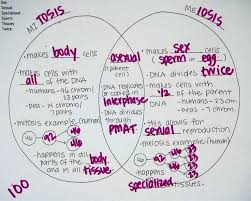 Sex
Sexual
Specialized
Sperm
Tissues
Twice
MITOSIS
MeIOSIS
-makes body cells
-makes cells with
all of the DNA
-humans - 46 chrom/
23 pairs
-pea - 14 chrom/
7 pairs
-mitosis example (human)
46
92
46
46
-happens in all
parts of the body
and in all
tissue
100
asexual
(1 parent
cell)
-DNA replicates
or copied in
interphase
-DNA divides
through
PMAT
-makes sex cells
(sperm or egg)
-DNA divides twice
-makes cells with
1/2 of the DNA
of the parent
-humans - 23 chrom
-peas - 7 chrom
-this is
sexual reproduction
-meiosis example (human)
46
92
46
46
23
23
23
23
-happens in
specialized tissues.